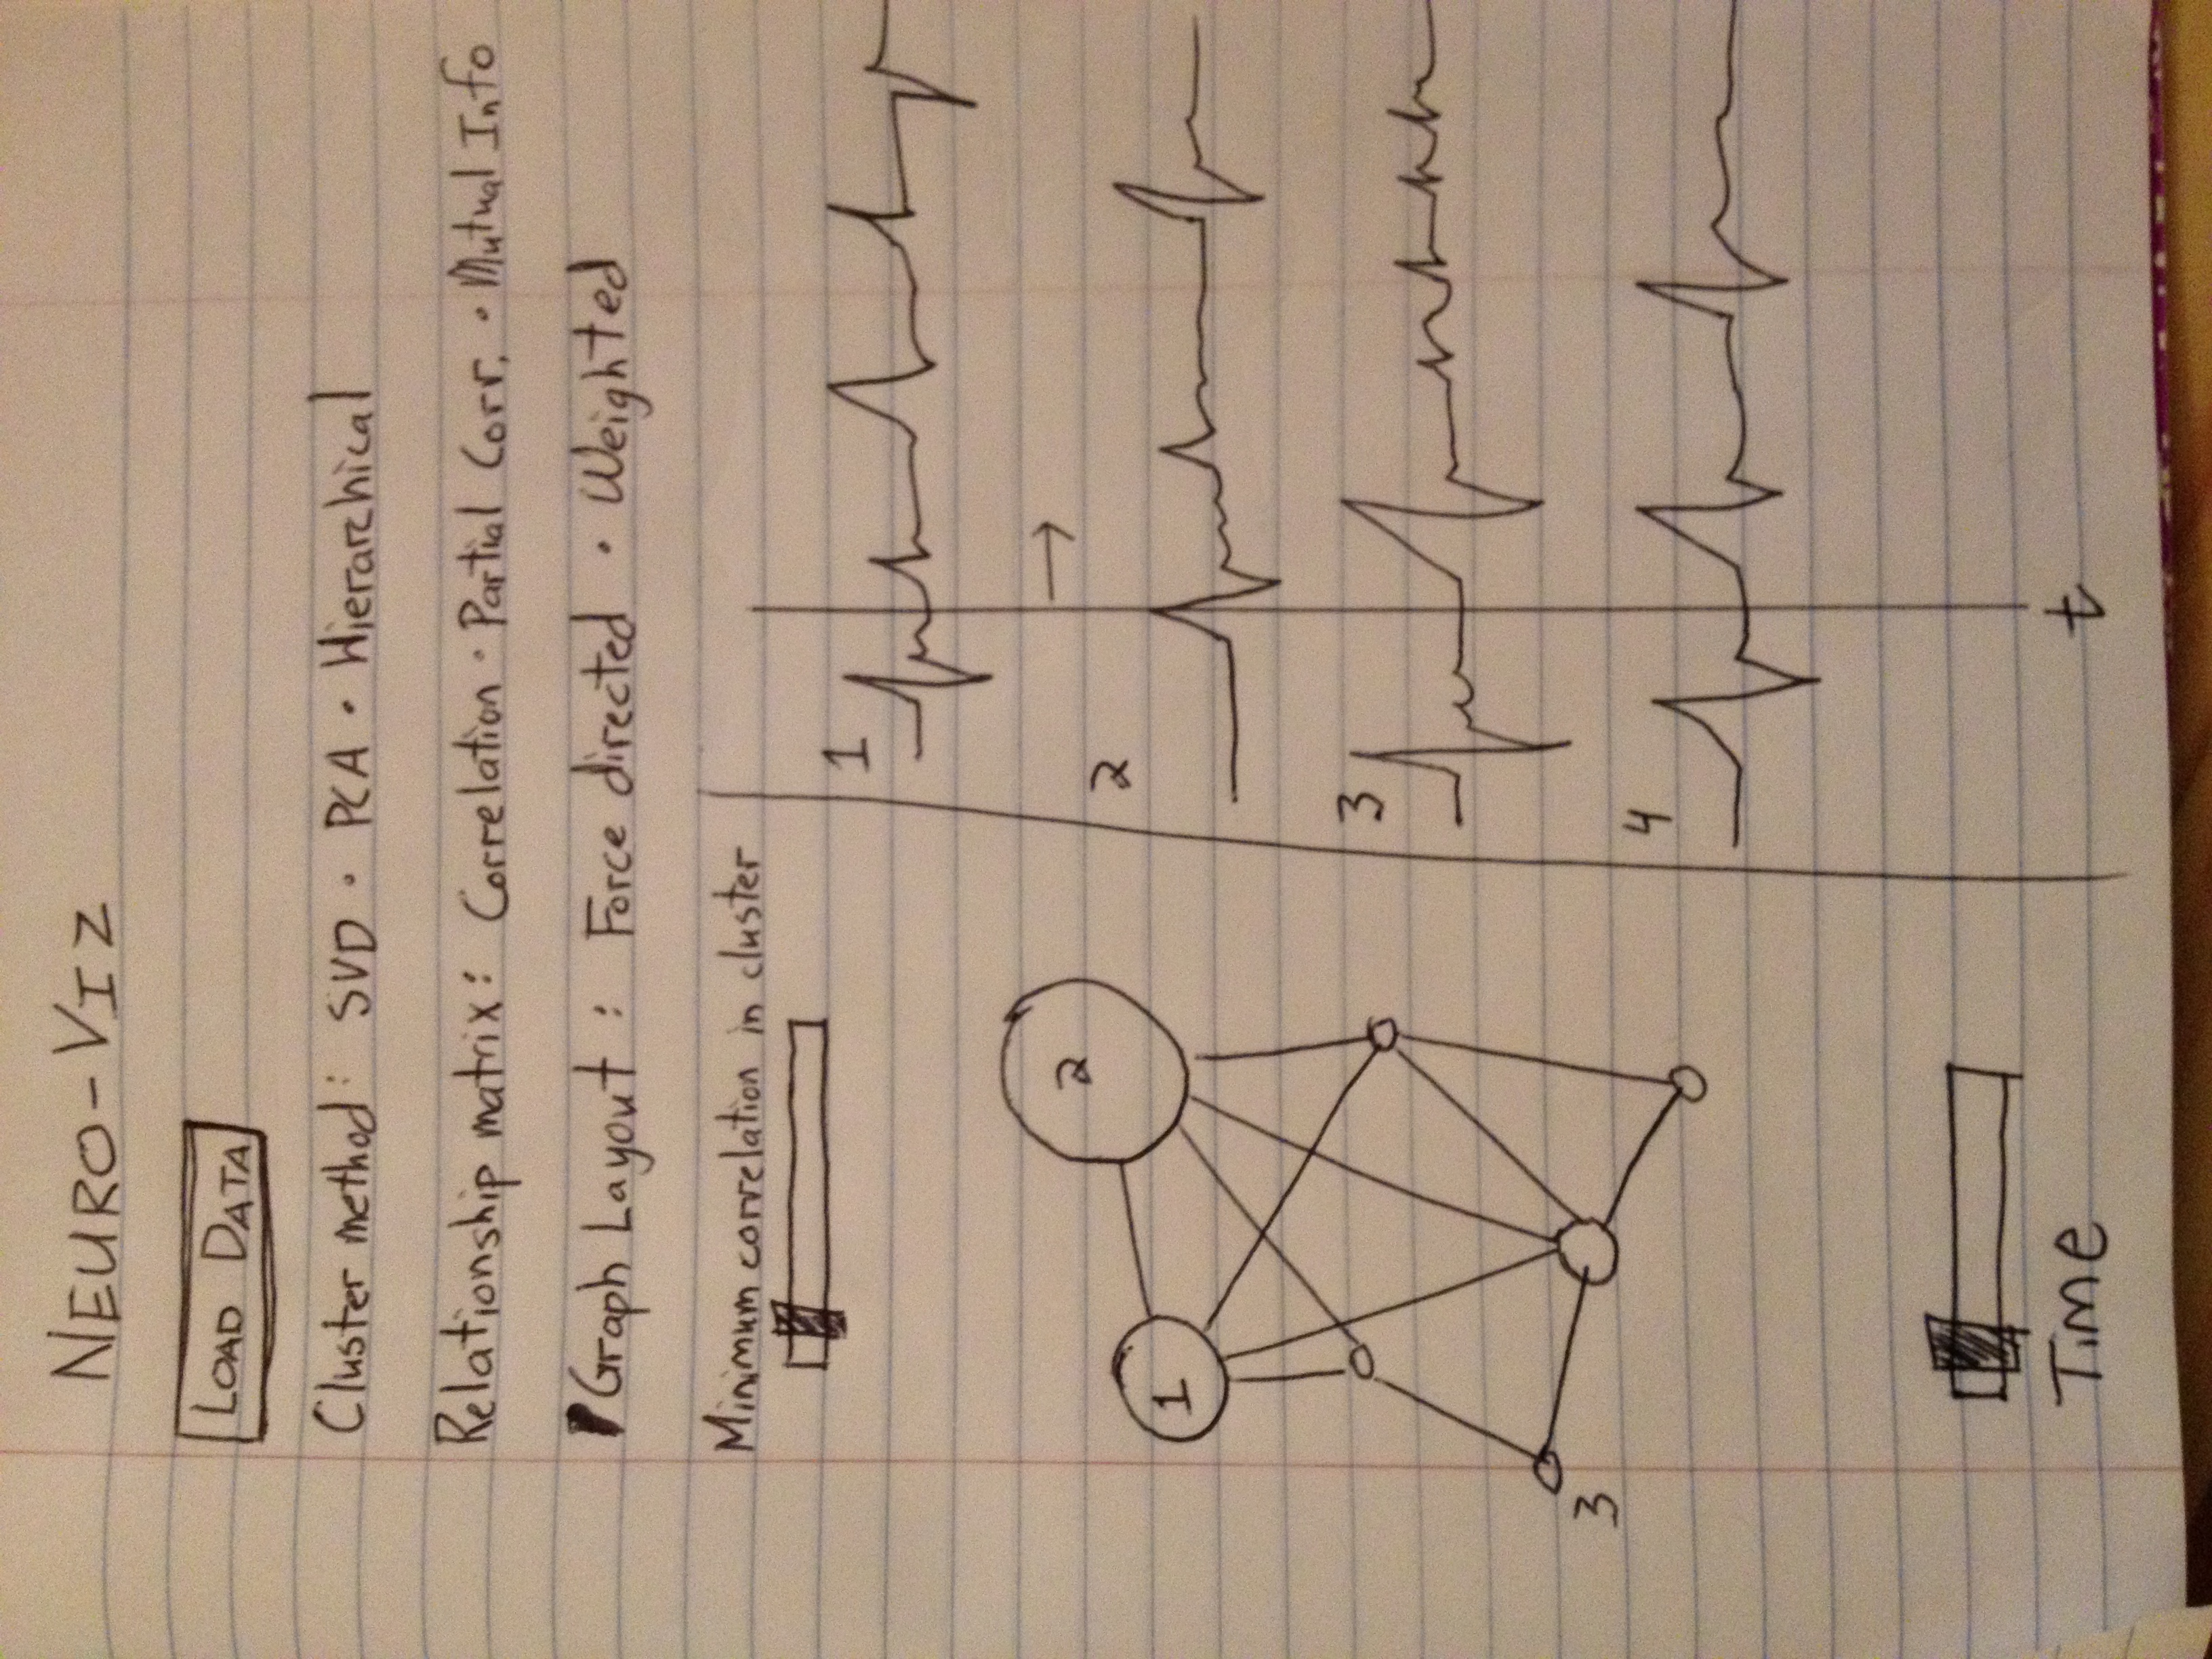 NEURO-VIZ
LOAD DATA
Cluster method: SVD · PCA · Hierarchical
Relationship matrix: Correlation · Partial Corr. · Mutual Info
Graph Layout : Force directed · Weighted
Minimum correlation in cluster
1
2
1
2
3
3
4
Time
t